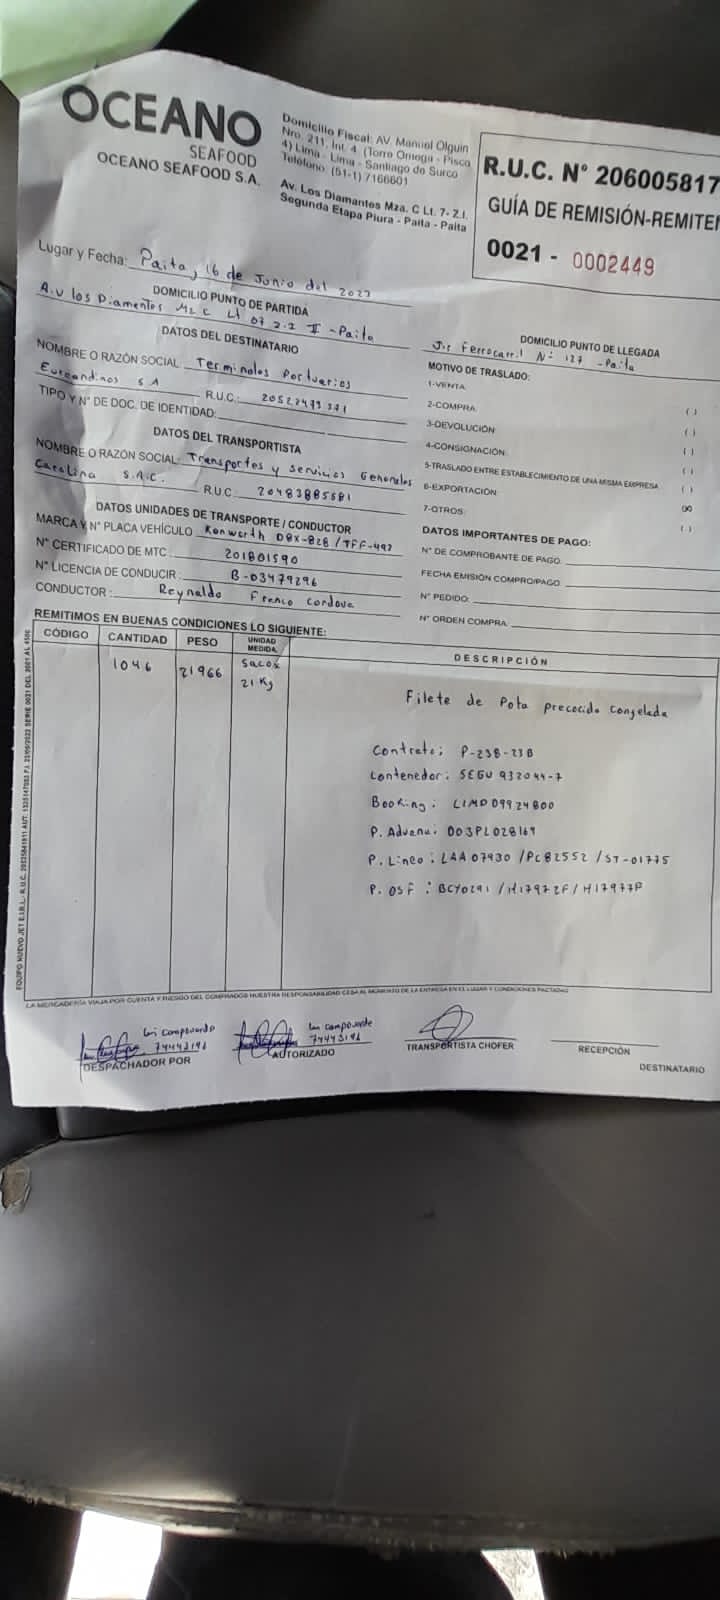 OCEANO
SEAFOOD
OCEANO SEAFOOD S.A.
Domicilio Fiscal: AV. Manuel Olguin
Nro. 211, Int. 4. (Torre Omega - Pisco
4) Lima - Lima - Santiago de Surco
Teléfono: (51-1) 7166601
Av. Los Diamantes Mza. C Lt. 7- Z.I.
Segunda Etapa Piura - Paita - Paita
R.U.C. N° 206005817
GUÍA DE REMISIÓN-REMITEN
0021 - 0002449
Lugar y Fecha: Paita, 16 de Junio del 2023
DOMICILIO PUNTO DE PARTIDA
A.v los Diamentes Mz C Lt 07 z.I II -Paita
DOMICILIO PUNTO DE LLEGADA
Jir Ferrocarril N: 127 -Paita
DATOS DEL DESTINATARIO
NOMBRE O RAZÓN SOCIAL Terminales Portuarios
Euroandinos SA R.U.C.: 20522473571
TIPO Y N° DE DOC. DE IDENTIDAD:
DATOS DEL TRANSPORTISTA
NOMBRE O RAZÓN SOCIAL: Transportes y servicios Generales
Carolina S.A.C. R.U.C.: 20483885681
DATOS UNIDADES DE TRANSPORTE / CONDUCTOR
MARCA Y N° PLACA VEHÍCULO Kenworth D8X-828 / TFF-497
N° CERTIFICADO DE MTC.: 201801590
N° LICENCIA DE CONDUCIR: B-03479296
CONDUCTOR: Reynaldo Franco Cordova
MOTIVO DE TRASLADO:
1-VENTA
2-COMPRA ( )
3-DEVOLUCIÓN: ( )
4-CONSIGNACIÓN ( )
5-TRASLADO ENTRE ESTABLECIMIENTO DE UNA MISMA EMPRESA ( )
6-EXPORTACIÓN: (X)
7-OTROS: ( )
DATOS IMPORTANTES DE PAGO:
N° DE COMPROBANTE DE PAGO:
FECHA EMISIÓN COMPRO/PAGO
N° PEDIDO:
N° ORDEN COMPRA:
REMITIMOS EN BUENAS CONDICIONES LO SIGUIENTE:
CÓDIGO CANTIDAD PESO UNIDAD MEDIDA DESCRIPCIÓN
1046 21966 Sacos
21 Kg
Filete de Pota precocido congelada
Contrato: P-238-23B
Contenedor: SEGU 932044-7
Booking: LIMD09924800
P. Aduana: 003PL028169
P. Linea: LAA07930 /PC82552 /ST-01775
P. OSF : BCY0291 /H17972F/H17977P
LA MERCADERÍA VIAJA POR CUENTA Y RIESGO DEL COMPRADOR NUESTRA RESPONSABILIDAD CESA AL MOMENTO DE LA ENTREGA EN EL LUGAR Y CONDICIONES PACTADAS
74443196
DESPACHADOR POR
74443196
AUTORIZADO
TRANSPORTISTA CHOFER
RECEPCIÓN
DESTINATARIO